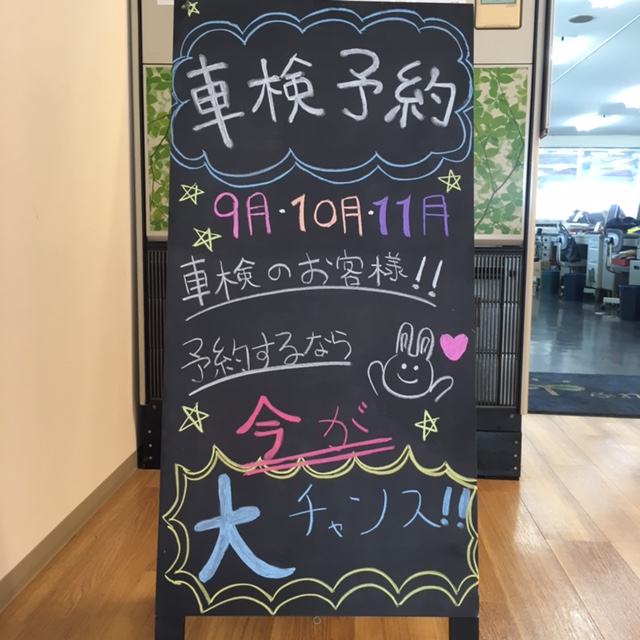 車検予約
9月・10月・11月
車検のお客様!!
予約するなら
今が
大チャンス!!